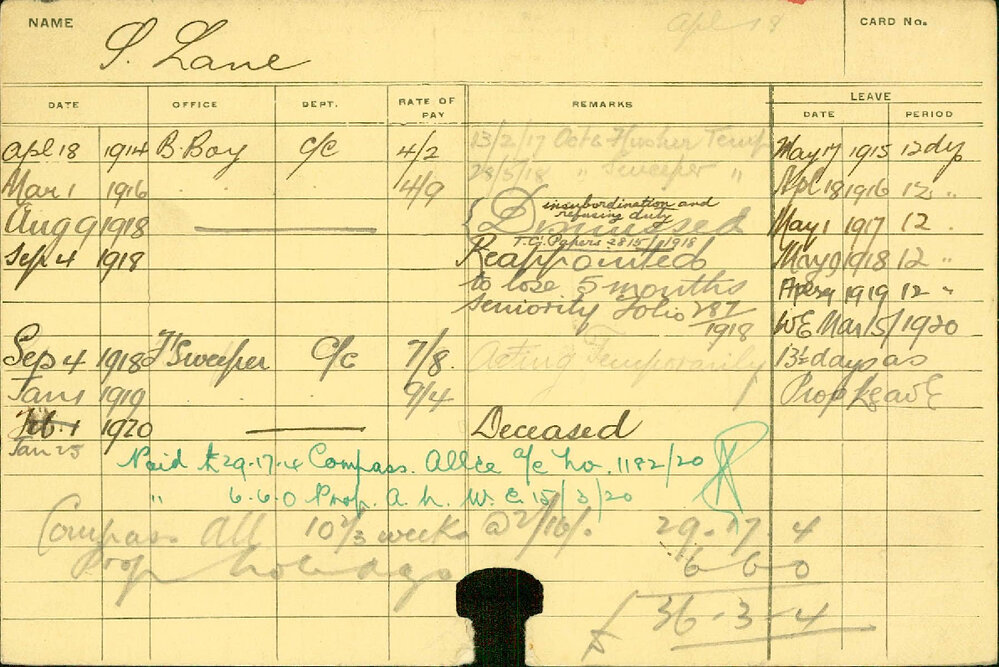 Apl 18
NAME
S. Lane
CARD No.
DATE OFFICE DEPT. RATE OF PAY REMARKS LEAVE
DATE PERIOD
Apl 18 1914 B. Boy C/C 4/2 13/2/17 Temp May 17 1915 12 dys
Mar 1 1916 . . . 4/9 28/5/18 " Sweeper " Apl 18 1916 12 "
insubordination and
refusing duty
Aug 9 1918 Dismissed May 1 1917 12 .
T.G. Papers 2815/1918
Sep 4 1918 Reappointed May 9 1918 12 "
to lose 5 months 1919 12 "
seniority Folio 287/1918 WE Mar 15/1920
Sep 4 1918 Sweeper C/C 7/8. Acting Temporary 13½ days as
Jan 1 1919 9/4 Prop Leave
Feb. 1 1920 Deceased
Jan 25
Paid £29-17-4 Compass. Allce a/c No. 1182/20
" 6.6.0 Prop. A. L. W. E. 15/3/20
Compass. All 10 2/3 weeks @ 2/16/. 29-17-4
Prop holidays 6 6 0
£ 36-3-4